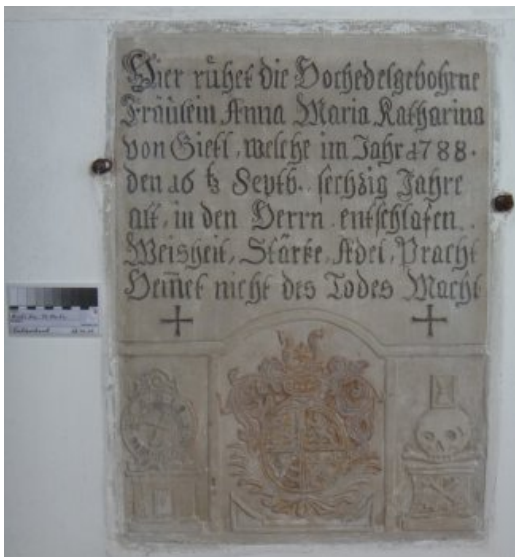 Hier ruhet die Hochedelgebohrne
Fräulein Anna Maria Katharina
von Gietl, welche im Jahr 1788.
den 16 ts Septb. sechzig Jahre
alt, in den Herrn entschlafen.
Weisheit, Stärke, Adel, Pracht
Hem̅et nicht des Todes Macht